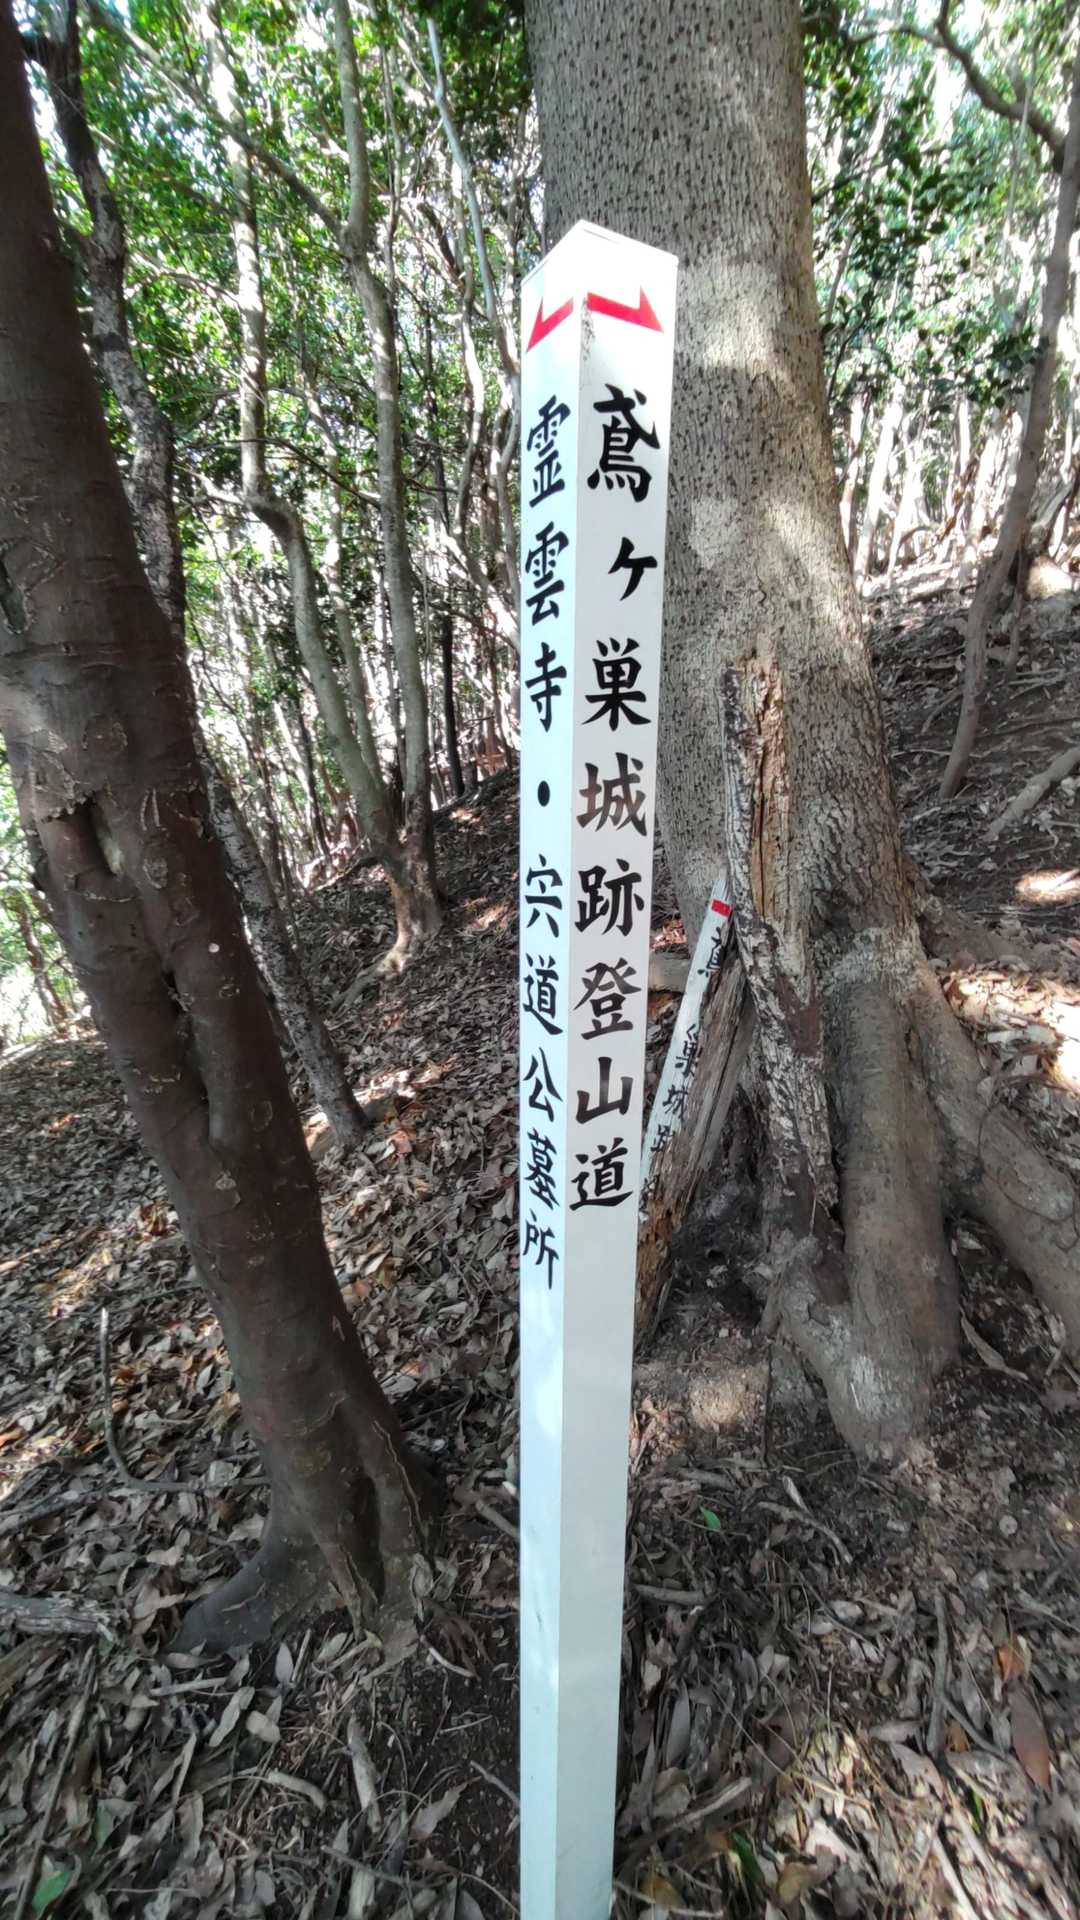 鳶ヶ巣城跡登山道
霊雲寺・宍道公墓所
巣城跡